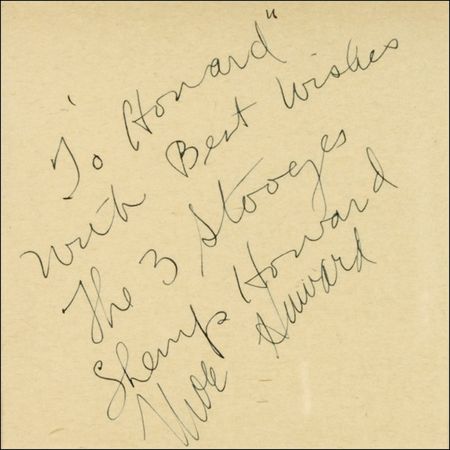 To Howard"
With Best Wishes
The 3 Stooges
Shemp Howard
Moe Howard